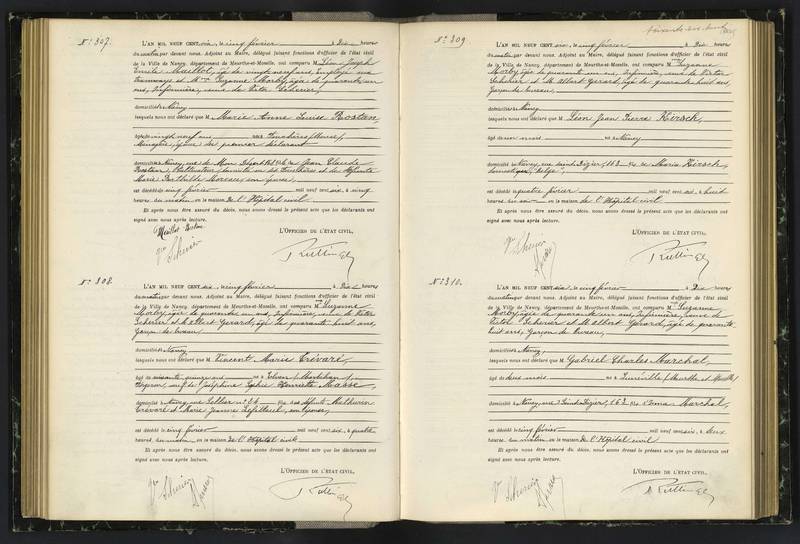 N° 307.
L'AN MIL NEUF CENT six, le cinq février à Dix heures
du matin par devant nous. Adjoint au Maire, délégué faisant fonctions d'officier de l'état civil
de la Ville de Nancy, département de Meurthe-et-Moselle, ont comparu M Léon Joseph
Emile Maillot, âgé de vingt neuf ans, employé aux
tramways et Mme Suzanne Morby, âgée de quarante un
ans, Infirmière, veuve de Victor Scherier,
domiciliés à Nancy
lesquels nous ont déclaré que M. Marie Anne Louise Rostan
âgée de vingt neuf ans née à (Meuse)
Ménagère, épouse du premier déclarant
domiciliée à Nancy, rue de Mon Désert fille de Jean Claude
Rostan, domicilié à et de défunte
Marie Moreau, son épouse
est décédée le cinq février mil neuf cent six, à cinq
heures du matin en la maison de l'Hôpital civil
Et après nous être assuré du décès, nous avons dressé le présent acte que les déclarants ont
signé avec nous après lecture.
L'OFFICIER DE L'ÉTAT CIVIL,
N° 308.
L'AN MIL NEUF CENT six, le cinq février à Dix heures
du matin par devant nous. Adjoint au Maire, délégué faisant fonctions d'officier de l'état civil
de la Ville de Nancy, département de Meurthe-et-Moselle, ont comparu Mme Suzanne
Morby, âgée de quarante un ans, Infirmière, veuve de Victor
Scherier et M. Albert Gérard, âgé de quarante huit ans,
Garçon de bureau,
domiciliés à Nancy
lesquels nous ont déclaré que M. Vincent Marie Trévaré
âgé de soixante quinze ans né à Elven (Morbihan)
veuf de Joséphine Sophie Henriette Masse,
domicilié à Nancy, rue Sellier n° 54 fils des défunts Mathurin
Trévaré et Marie Jeanne son épouse,
est décédé le cinq février mil neuf cent six, à quatre
heures du matin en la maison de l'Hôpital civil
Et après nous être assuré du décès, nous avons dressé le présent acte que les déclarants ont
signé avec nous après lecture.
L'OFFICIER DE L'ÉTAT CIVIL,
N° 309
L'AN MIL NEUF CENT six, le cinq février à Dix heures
du matin par devant nous. Adjoint au Maire, délégué faisant fonctions d'officier de l'état civil
de la Ville de Nancy, département de Meurthe-et-Moselle, ont comparu Mme Suzanne
Morby, âgée de quarante un ans, Infirmière, veuve de Victor
Scherier et M. Albert Gérard, âgé de quarante huit ans,
Garçon de bureau,
domiciliés à Nancy
lesquels nous ont déclaré que M. Léon Jean Pierre Kirsch,
âgé de un mois né à Nancy
domicilié à Nancy, rue Saint Dizier, 162 fils de Maria Kirsch,
domestique, belge,
est décédé le quatre février mil neuf cent six, à huit
heures du soir en la maison de l'Hôpital civil
Et après nous être assuré du décès, nous avons dressé le présent acte que les déclarants ont
signé avec nous après lecture.
L'OFFICIER DE L'ÉTAT CIVIL,
N° 310.
L'AN MIL NEUF CENT six, le cinq février à Dix heures
du matin par devant nous. Adjoint au Maire, délégué faisant fonctions d'officier de l'état civil
de la Ville de Nancy, département de Meurthe-et-Moselle, ont comparu Mme Suzanne
Morby, âgée de quarante un ans, Infirmière, veuve de
Victor Scherier et M. Albert Gérard, âgé de quarante
huit ans, Garçon de bureau,
domiciliés à Nancy,
lesquels nous ont déclaré que M. Gabriel Charles Marchal,
âgé de deux mois né à Lunéville (Meurthe et Moselle)
domicilié à Nancy, rue Saint Dizier, 162 fils d'Emma Marchal,
est décédé le cinq février mil neuf cent six, à deux
heures du matin en la maison de l'Hôpital civil
Et après nous être assuré du décès, nous avons dressé le présent acte que les déclarants ont
signé avec nous après lecture.
L'OFFICIER DE L'ÉTAT CIVIL,